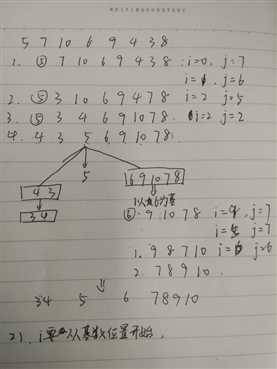 5 7 10 6 9 4 3 8
1. ⑤ 7 10 6 9 4 3 8 i=0, j=7
i=1, j=6
2. ⑤ 3 10 6 9 4 7 8 i=2 j=5
3. ⑤ 3 4 6 9 10 7 8 i=2 j=2
4. 4 3 5 6 9 10 7 8
4 3 5 6 9 10 7 8
以6为基
3 4 ⑥ 9 10 7 8 i=4, j=7
i=5 j=7
1. 9 8 7 10 i=6 j=6
2. 7 8 9 10
3 4 5 6 7 8 9 10
2). i要从基数位置开始.